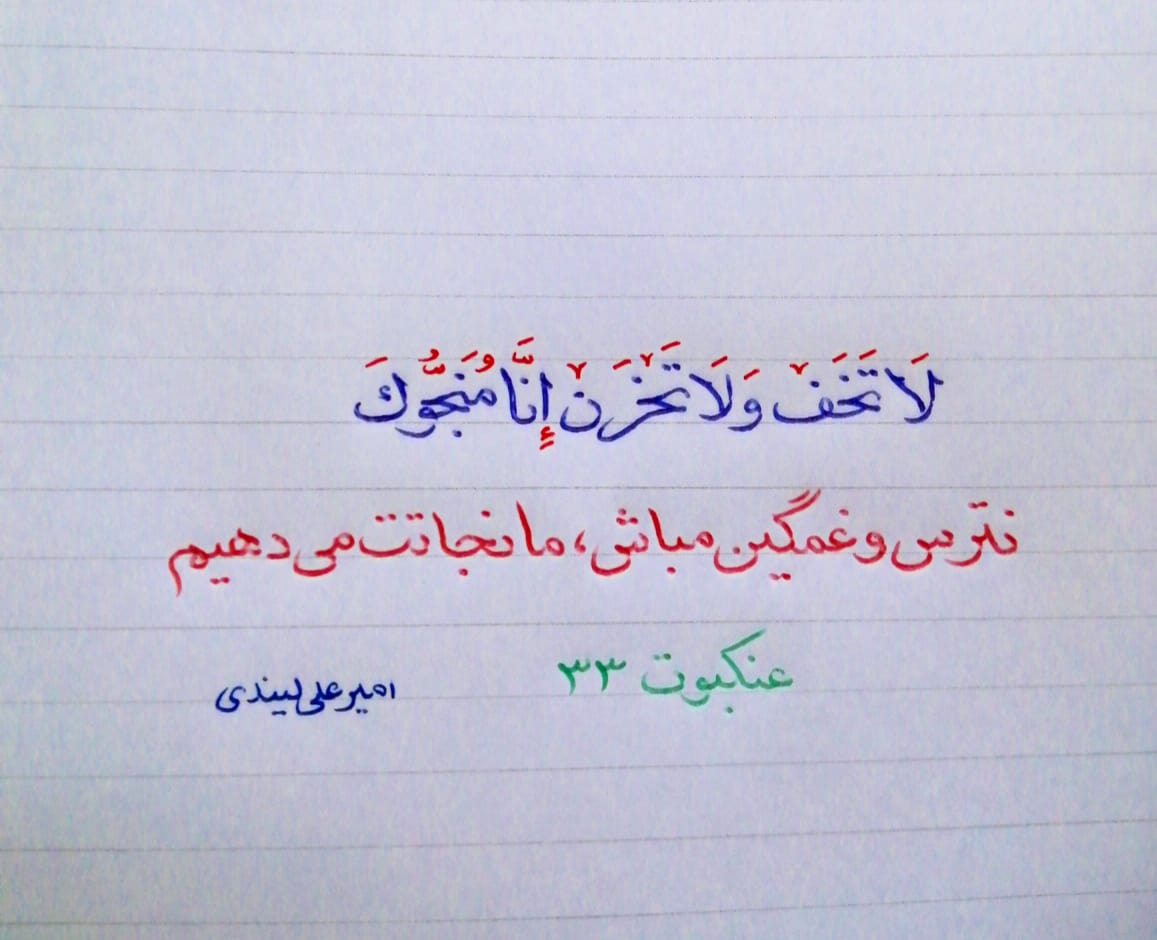 لَا تَخَفْ وَلَا تَحْزَنْ إِنَّا مُنَجُّوكَ
نترس و غمگین مباش، ما نجاتت می‌دهیم
عنکبوت ۳۳
امیرعلی